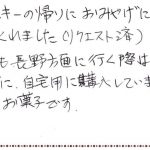 スキーの帰りに おみやげに
くれました(リクエスト済)
も長野方面に行く際は
に、自宅用に購入していま
お菓子です。